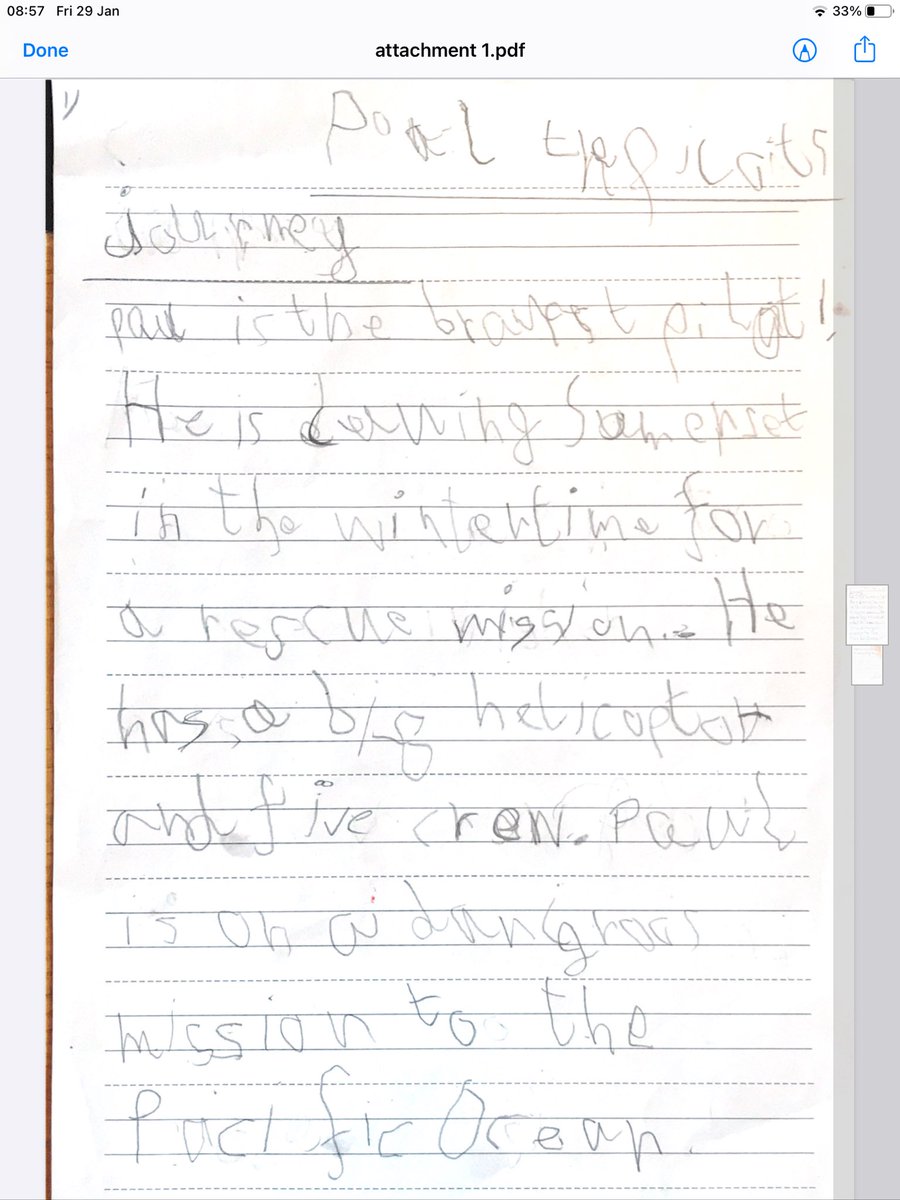 08:57 Fri 29 Jan 33%
Done attachment 1.pdf
1)
Paul the pilots
journey
paul is the bravest pilot!
He is leaving Somerset
in the wintertime for
a rescue mission. He
has a big helicoptor
and five crew. Paul
is on a dangrous
mission to the
Pacific Ocean.